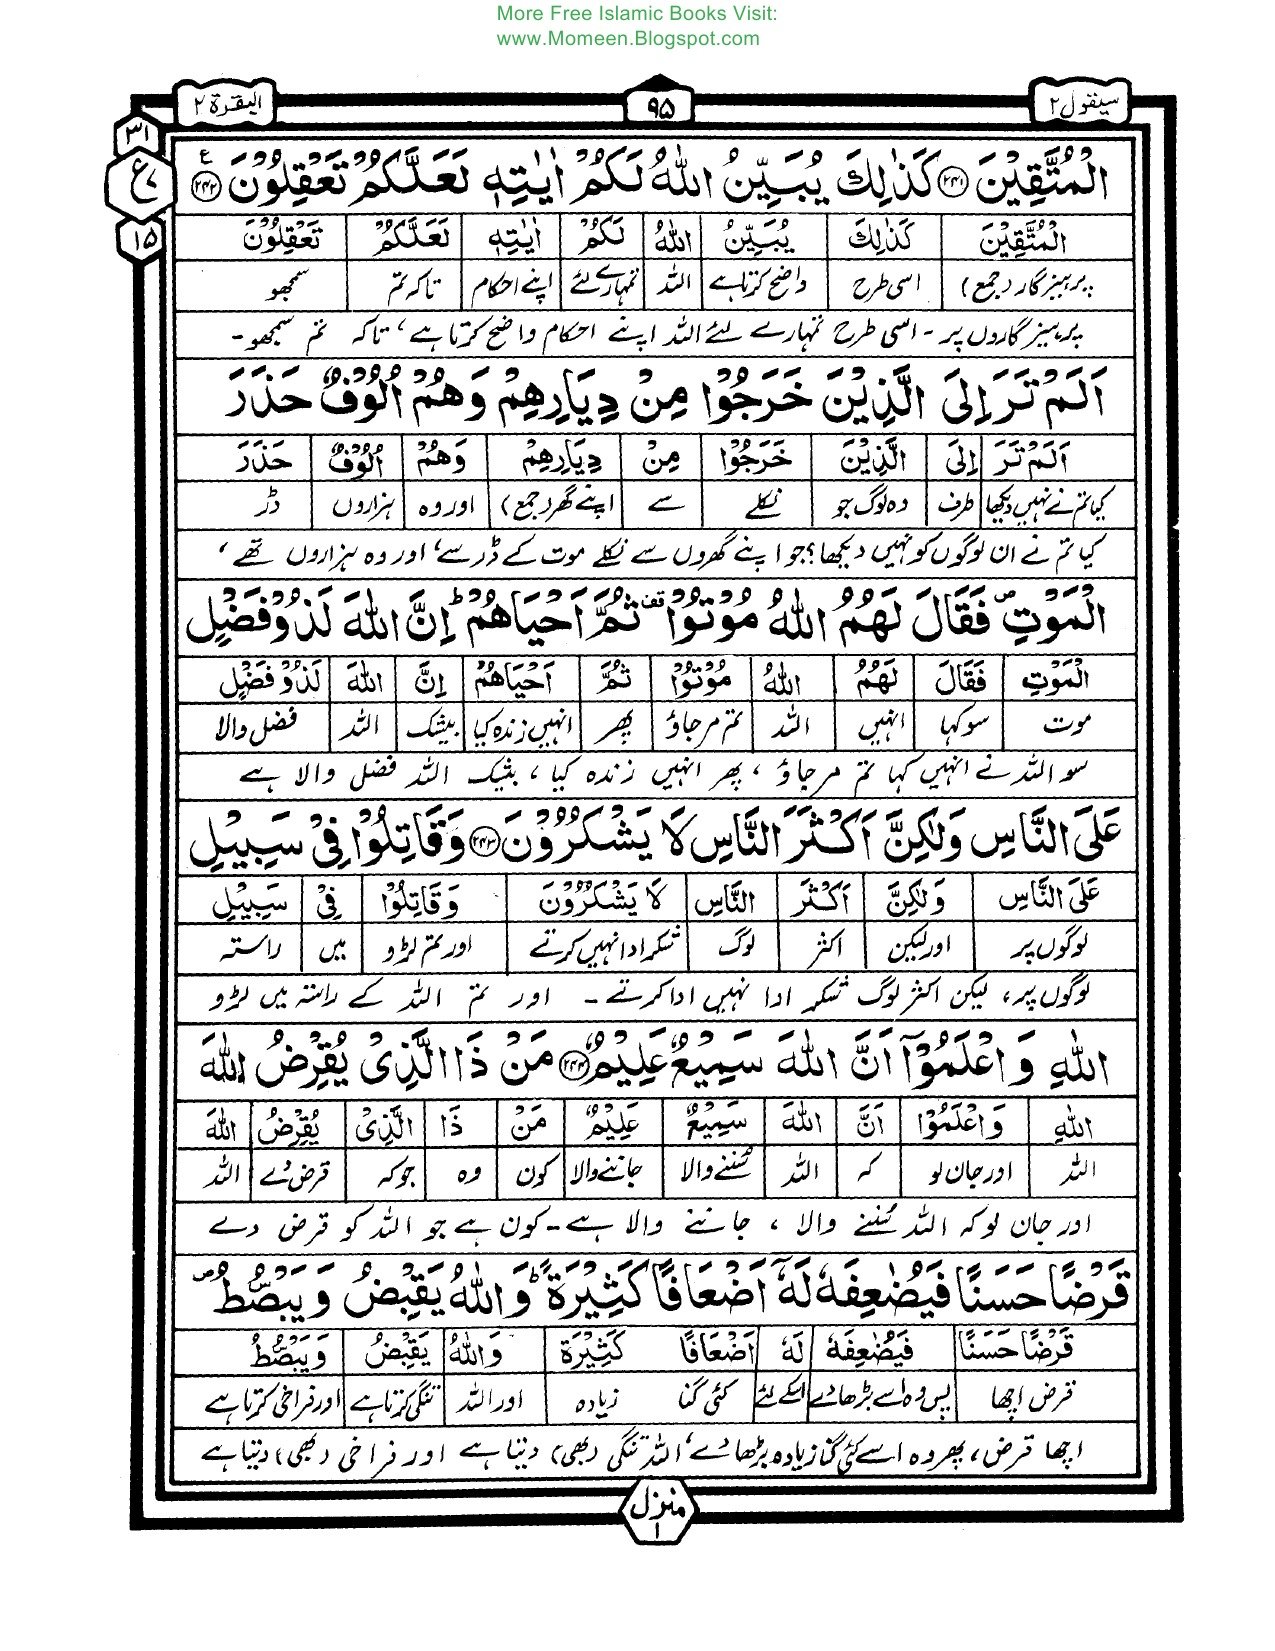 More Free Islamic Books Visit:
www.Momeen.Blogspot.com
سیقول ۲
۹۵
البقرة ۲
۳۱
ع ۷
۱۵
الْمُتَّقِيْنَ ﴿۲۴۱﴾ كَذٰلِكَ يُبَيِّنُ اللّٰهُ لَكُمْ اٰيٰتِهٖ لَعَلَّكُمْ تَعْقِلُوْنَ ﴿۲۴۲﴾ ع
الْمُتَّقِيْنَ كَذٰلِكَ يُبَيِّنُ اللّٰهُ لَكُمْ اٰيٰتِهٖ لَعَلَّكُمْ تَعْقِلُوْنَ
پرہیزگار (جمع) اسی طرح واضح کرتا ہے اللہ تمہارے لئے اپنے احکام تاکہ تم سمجھو
پرہیز گاروں پر - اسی طرح تمہارے لئے اللہ اپنے احکام واضح کرتا ہے، تاکہ تم سمجھو -
اَلَمْ تَرَ اِلَى الَّذِيْنَ خَرَجُوْا مِنْ دِيَارِهِمْ وَهُمْ اُلُوْفٌ حَذَرَ
اَلَمْ تَرَ اِلَى الَّذِيْنَ خَرَجُوْا مِنْ دِيَارِهِمْ وَهُمْ اُلُوْفٌ حَذَرَ
کیا تم نے نہیں دیکھا طرف وہ لوگ جو نکلے سے اپنے گھر (جمع) اور وہ ہزاروں ڈر
کیا تم نے ان لوگوں کو نہیں دیکھا؟ جو اپنے گھروں سے نکلے موت کے ڈر سے، اور وہ ہزاروں تھے،
الْمَوْتِ ۪ فَقَالَ لَهُمُ اللّٰهُ مُوْتُوْا ۫ ثُمَّ اَحْيَاهُمْ ؕ اِنَّ اللّٰهَ لَذُوْ فَضْلٍ
الْمَوْتِ فَقَالَ لَهُمُ اللّٰهُ مُوْتُوْا ثُمَّ اَحْيَاهُمْ اِنَّ اللّٰهَ لَذُوْ فَضْلٍ
موت سو کہا انہیں اللہ تم مر جاؤ پھر انہیں زندہ کیا بیشک اللہ فضل والا
سو اللہ نے انہیں کہا تم مر جاؤ، پھر انہیں زندہ کیا، بیشک اللہ فضل والا ہے
عَلَى النَّاسِ وَلٰكِنَّ اَكْثَرَ النَّاسِ لَا يَشْكُرُوْنَ ﴿۲۴۳﴾ وَقَاتِلُوْا فِيْ سَبِيْلِ
عَلَى النَّاسِ وَلٰكِنَّ اَكْثَرَ النَّاسِ لَا يَشْكُرُوْنَ وَقَاتِلُوْا فِيْ سَبِيْلِ
لوگوں پر اور لیکن اکثر لوگ شکر ادا نہیں کرتے اور تم لڑو میں راستہ
لوگوں پر، لیکن اکثر لوگ شکر ادا نہیں ادا کرتے - اور تم اللہ کے راستہ میں لڑو
اللّٰهِ وَاعْلَمُوْٓا اَنَّ اللّٰهَ سَمِيْعٌ عَلِيْمٌ ﴿۲۴۴﴾ مَنْ ذَا الَّذِيْ يُقْرِضُ اللّٰهَ
اللّٰهِ وَاعْلَمُوْٓا اَنَّ اللّٰهَ سَمِيْعٌ عَلِيْمٌ مَنْ ذَا الَّذِيْ يُقْرِضُ اللّٰهَ
اللہ اور جان لو کہ اللہ سُننے والا جاننے والا کون وہ جو کہ قرض دے اللہ
اور جان لو کہ اللہ سُننے والا، جاننے والا ہے - کون ہے جو اللہ کو قرض دے
قَرْضًا حَسَنًا فَيُضٰعِفَهٗ لَهٗٓ اَضْعَافًا كَثِيْرَةً ؕ وَاللّٰهُ يَقْبِضُ وَيَبْصُۜطُ ۪
قَرْضًا حَسَنًا فَيُضٰعِفَهٗ لَهٗ اَضْعَافًا كَثِيْرَةً وَاللّٰهُ يَقْبِضُ وَيَبْصُۜطُ
قرض اچھا پس وہ اسے بڑھا دے اسکے لئے کئی گنا زیادہ اور اللہ تنگی کرتا ہے اور فراخی کرتا ہے
اچھا قرض، پھر وہ اسے کئی گنا زیادہ بڑھا دے، اللہ تنگی (بھی) دیتا ہے اور فراخی (بھی) دیتا ہے
منزل ۱